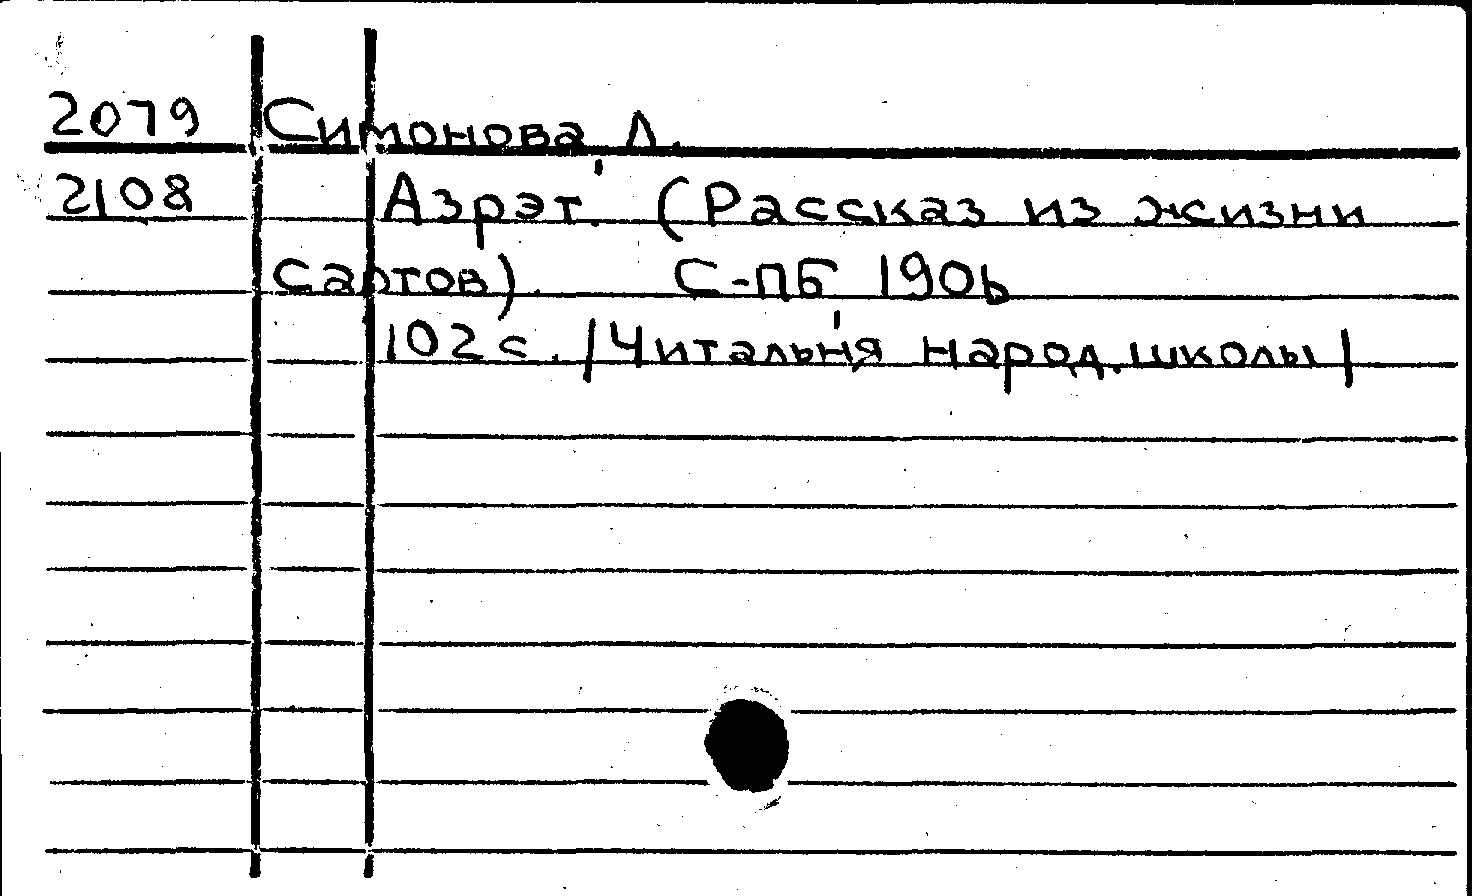 2079 Симонова, Л.
2108 Азрэт. (Рассказ из жизни
сартов). С-ПБ 1906
102 с. /Читальня народ. школы/